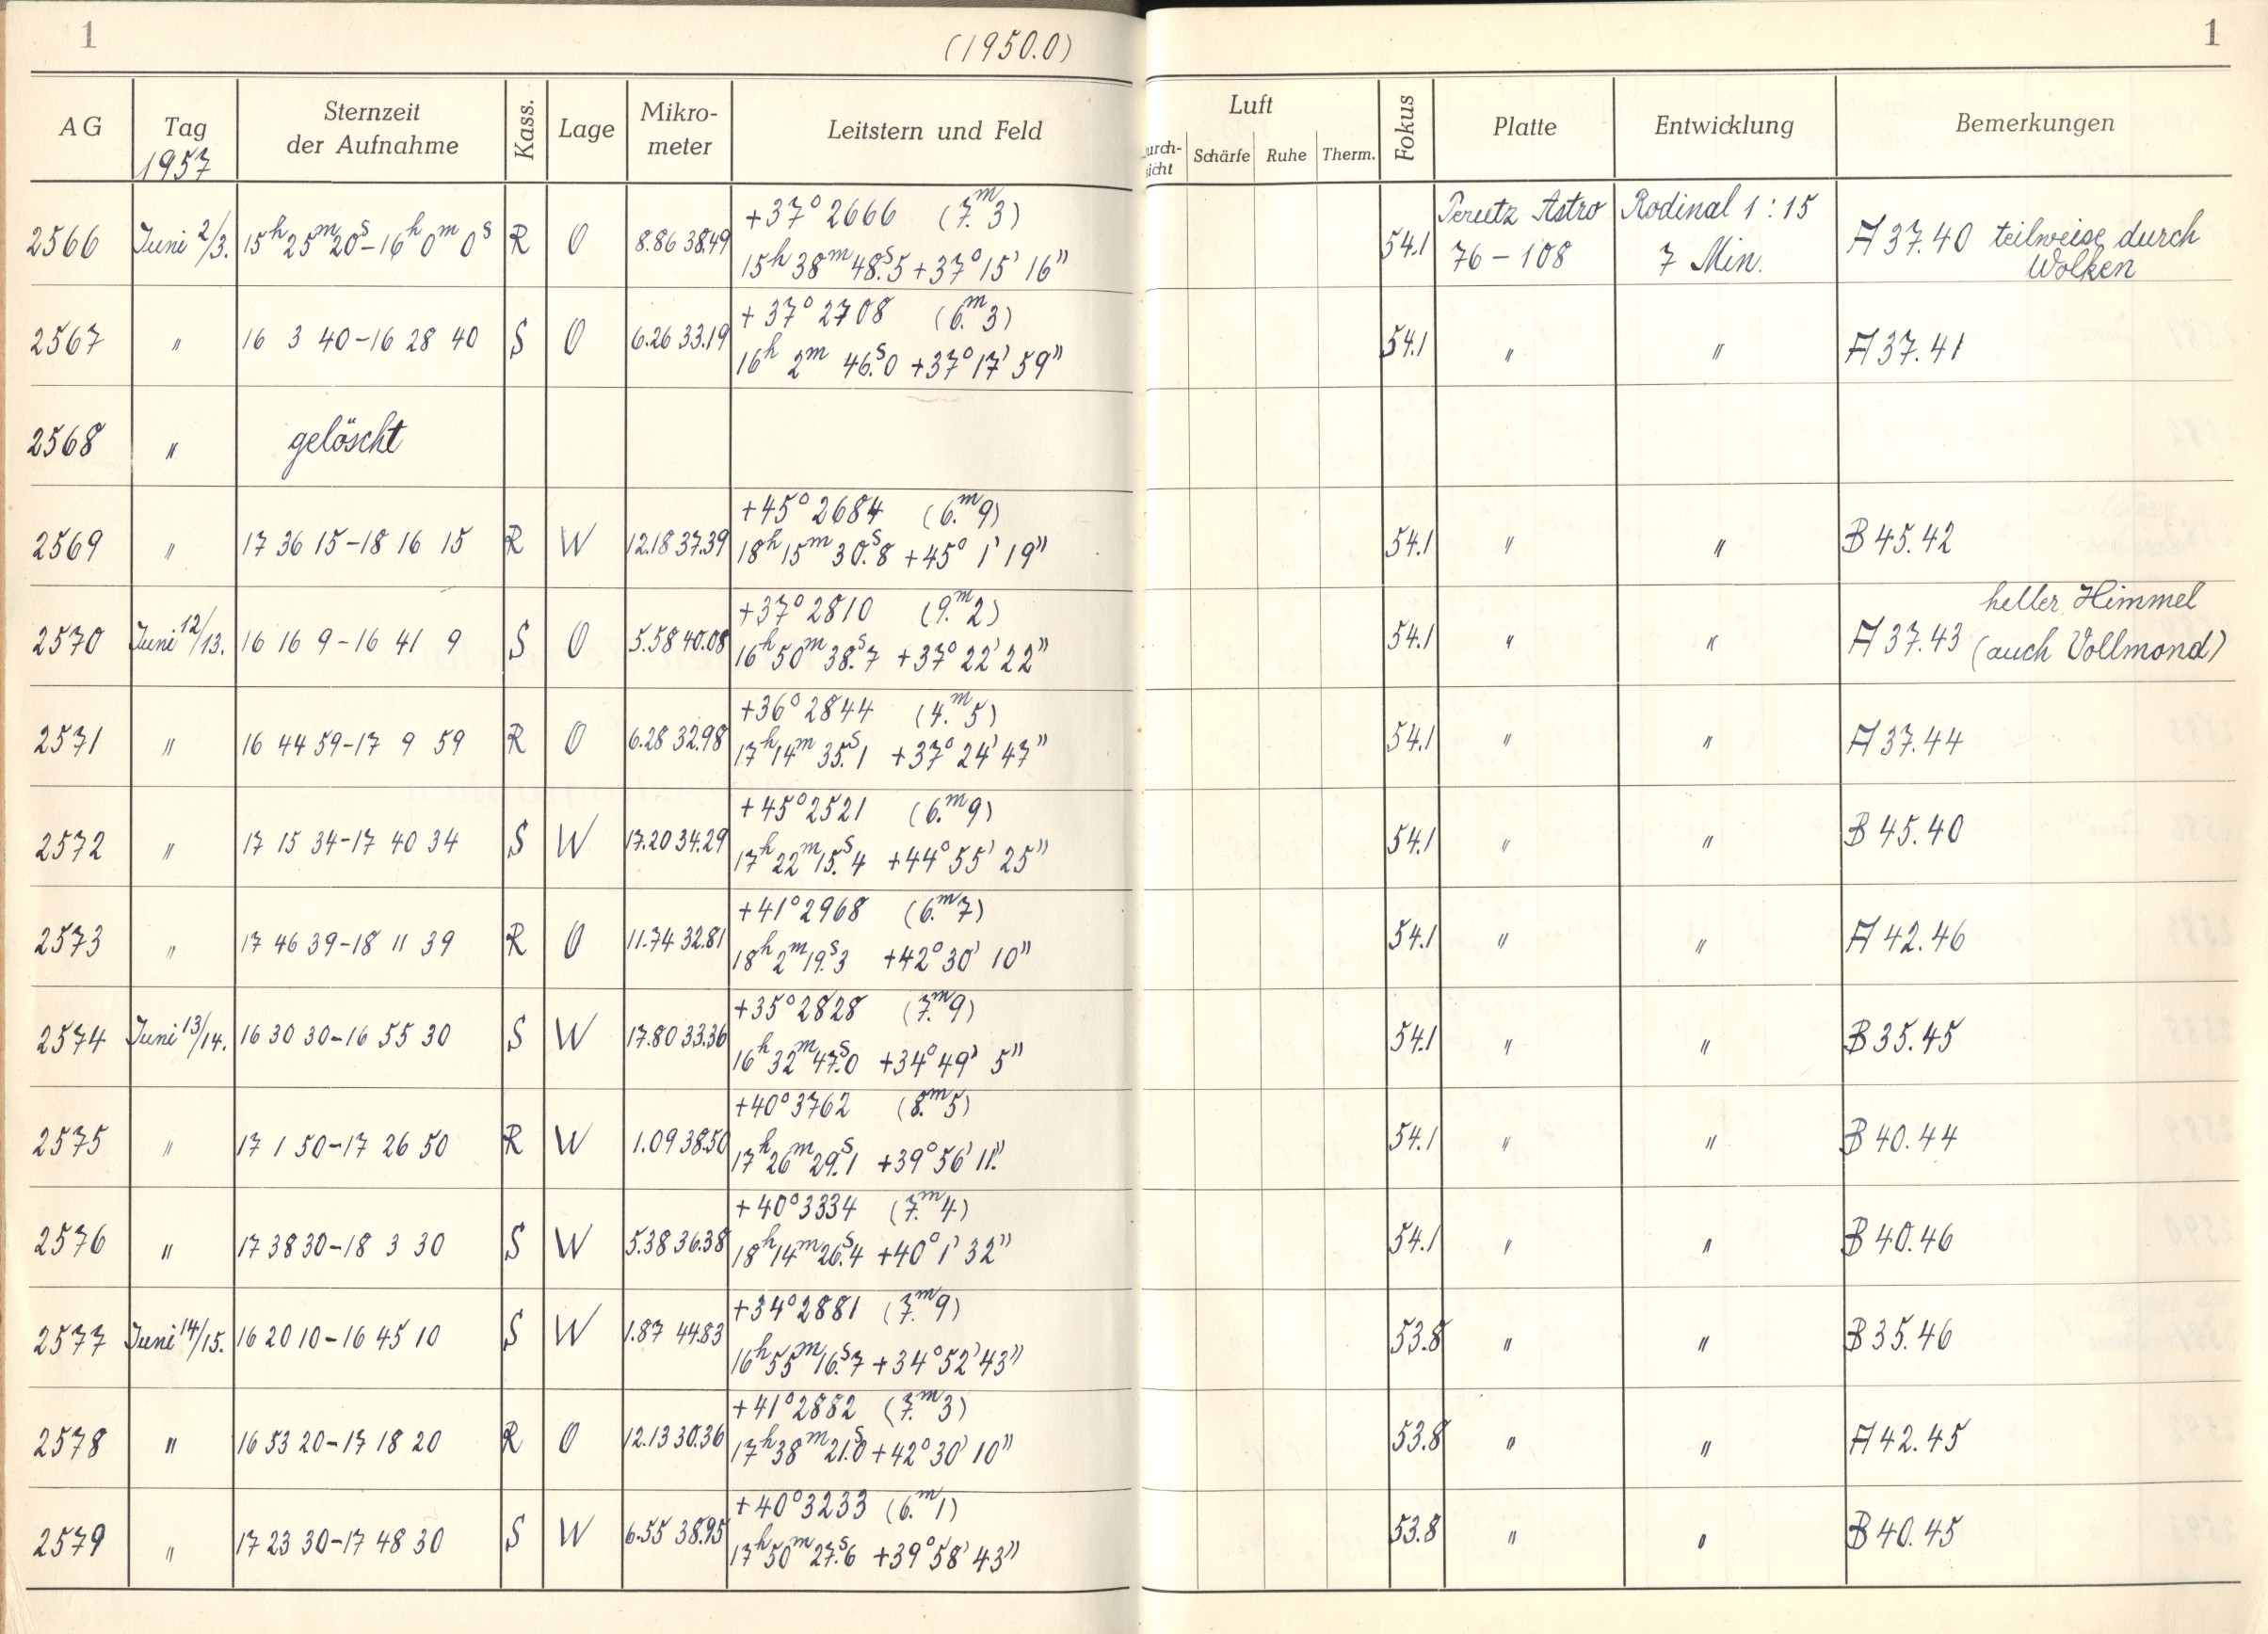 1
(1950.0)
1
AG Tag 1957 Sternzeit der Aufnahme Kass. Lage Mikro-meter Leitstern und Feld Luft urch-sicht Schärfe Ruhe Therm. Fokus Platte Entwicklung Bemerkungen
+37° 2666 (7.m3) Perutz Astro Rodinal 1:15
2566 Juni 2/3. 15h25m20s–16h0m0s R O 8.86 38.49 54.1 A 37.40 teilweise durch
15h38m48.s5 +37°15'16" 76–108 7 Min. Wolken
+37° 2708 (6.m3)
2567 " 16 3 40–16 28 40 S O 6.26 33.19 54.1 " " A 37.41
16h 2m 46.s0 +37°17'59"
2568 " gelöscht
+45° 2684 (6.m9)
2569 " 17 36 15–18 16 15 R W 12.18 37.39 54.1 " " B 45.42
18h15m30.s8 +45° 1' 19"
+37° 2810 (9.m2) heller Himmel
2570 Juni 12/13. 16 16 9–16 41 9 S O 5.58 40.08 54.1 " " A 37.43 (auch Vollmond)
16h50m38.s7 +37°22'22"
+36° 2844 (4.m5)
2571 " 16 44 59–17 9 59 R O 6.28 32.98 54.1 " " A 37.44
17h14m35.s1 +37°24'47"
+45° 2521 (6.m9)
2572 " 17 15 34–17 40 34 S W 17.20 34.29 54.1 " " B 45.40
17h22m15.s4 +44°55'25"
+41° 2968 (6.m7)
2573 " 17 46 39–18 11 39 R O 11.74 32.81 54.1 " " A 42.46
18h2m19.s3 +42°30'10"
+35° 2828 (7.m9)
2574 Juni 13/14. 16 30 30–16 55 30 S W 17.80 33.36 54.1 " " B 35.45
16h32m47.s0 +34°49' 5"
+40° 3762 (8.m5)
2575 " 17 1 50–17 26 50 R W 1.09 38.50 54.1 " " B 40.44
17h26m29.s1 +39°56'11"
+40° 3334 (7.m4)
2576 " 17 38 30–18 3 30 S W 5.38 36.38 54.1 " " B 40.46
18h14m26.s4 +40° 1' 32"
+34° 2881 (7.m9)
2577 Juni 14/15. 16 20 10–16 45 10 S W 1.87 44.83 53.8 " " B 35.46
16h55m16.s7 +34°52'43"
+41° 2882 (7.m3)
2578 " 16 53 20–17 18 20 R O 12.13 30.36 53.8 " " A 42.45
17h38m21.s0 +42°30'10"
+40° 3233 (6.m1)
2579 " 17 23 30–17 48 30 S W 6.55 38.95 53.8 " " B 40.45
17h50m27.s6 +39°58'43"